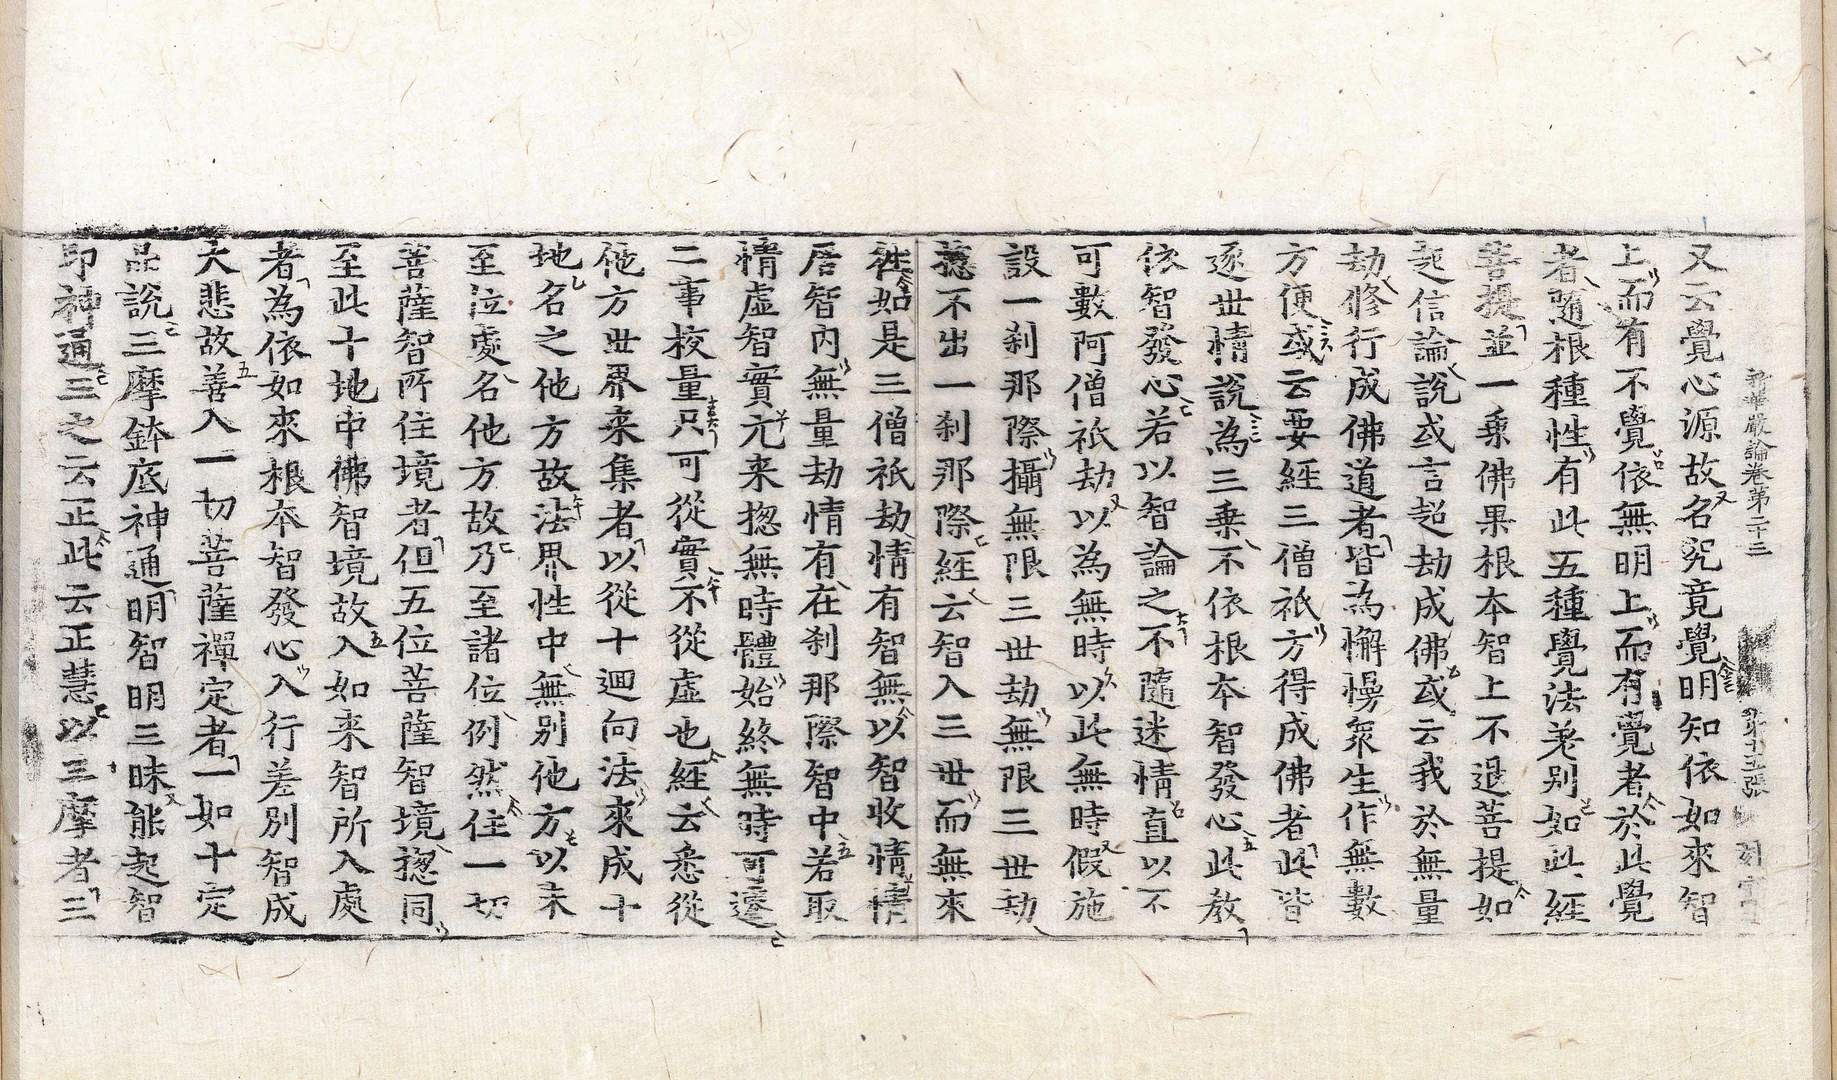 新華嚴論卷第二十三 第十五張
又云覺心源故名究竟覺明知依如來智
上而有不覺依無明上而有覺者於此覺
者隨根種性有此五種覺法差別如此經
菩提並一乗佛果根本智上不退菩提如
起信論說或言超劫成佛或云我於無量
劫修行成佛道者皆為懈慢衆生作無數
方便或云要經三僧祇方得成佛者此皆
逐世情說為三乗不依根本智發心此教
依智發心若以智論之不隨迷情直以不
可數阿僧祇劫以為無時以此無時假施
設一刹那際攝無限三世劫無限三世劫
揔不出一刹那際經云智入三世而無來
徃如是三僧祇劫情有智無以智收情情
居智内無量劫情有在刹那際智中若取
情虛智實元来揔無時體始終無時可遷
二事校量只可從實不從虛也經云悉從
他方世界来集者以從十迴向法來成十
地名之他方故法界性中無別他方以未
至位處名他方故乃至諸位例然住一切
菩薩智所住境者但五位菩薩智境揔同
至此十地中佛智境故入如来智所入處
者為依如來根本智發心入行差別智成
大悲故善入一切菩薩禪定者一如十定
品說三摩鉢底神通明智明三昧能起智
即神通三之云正此云正慧以三摩者三